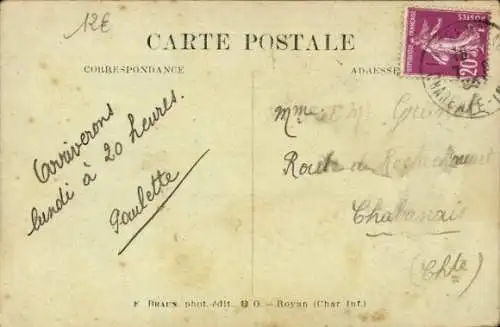 12€
CARTE POSTALE
CORRESPONDANCE
ADRESSE
REPUBLIQUE FRANÇAISE
POSTES
20
CHARENTE-IN
Arriverons
lundi à 20 heures.
Paulette
Mme
Route de Rochechouart
Chabanais
(Chte)
F. BRAUN, phot.-édit. O. - Royan (Char. Inf.)